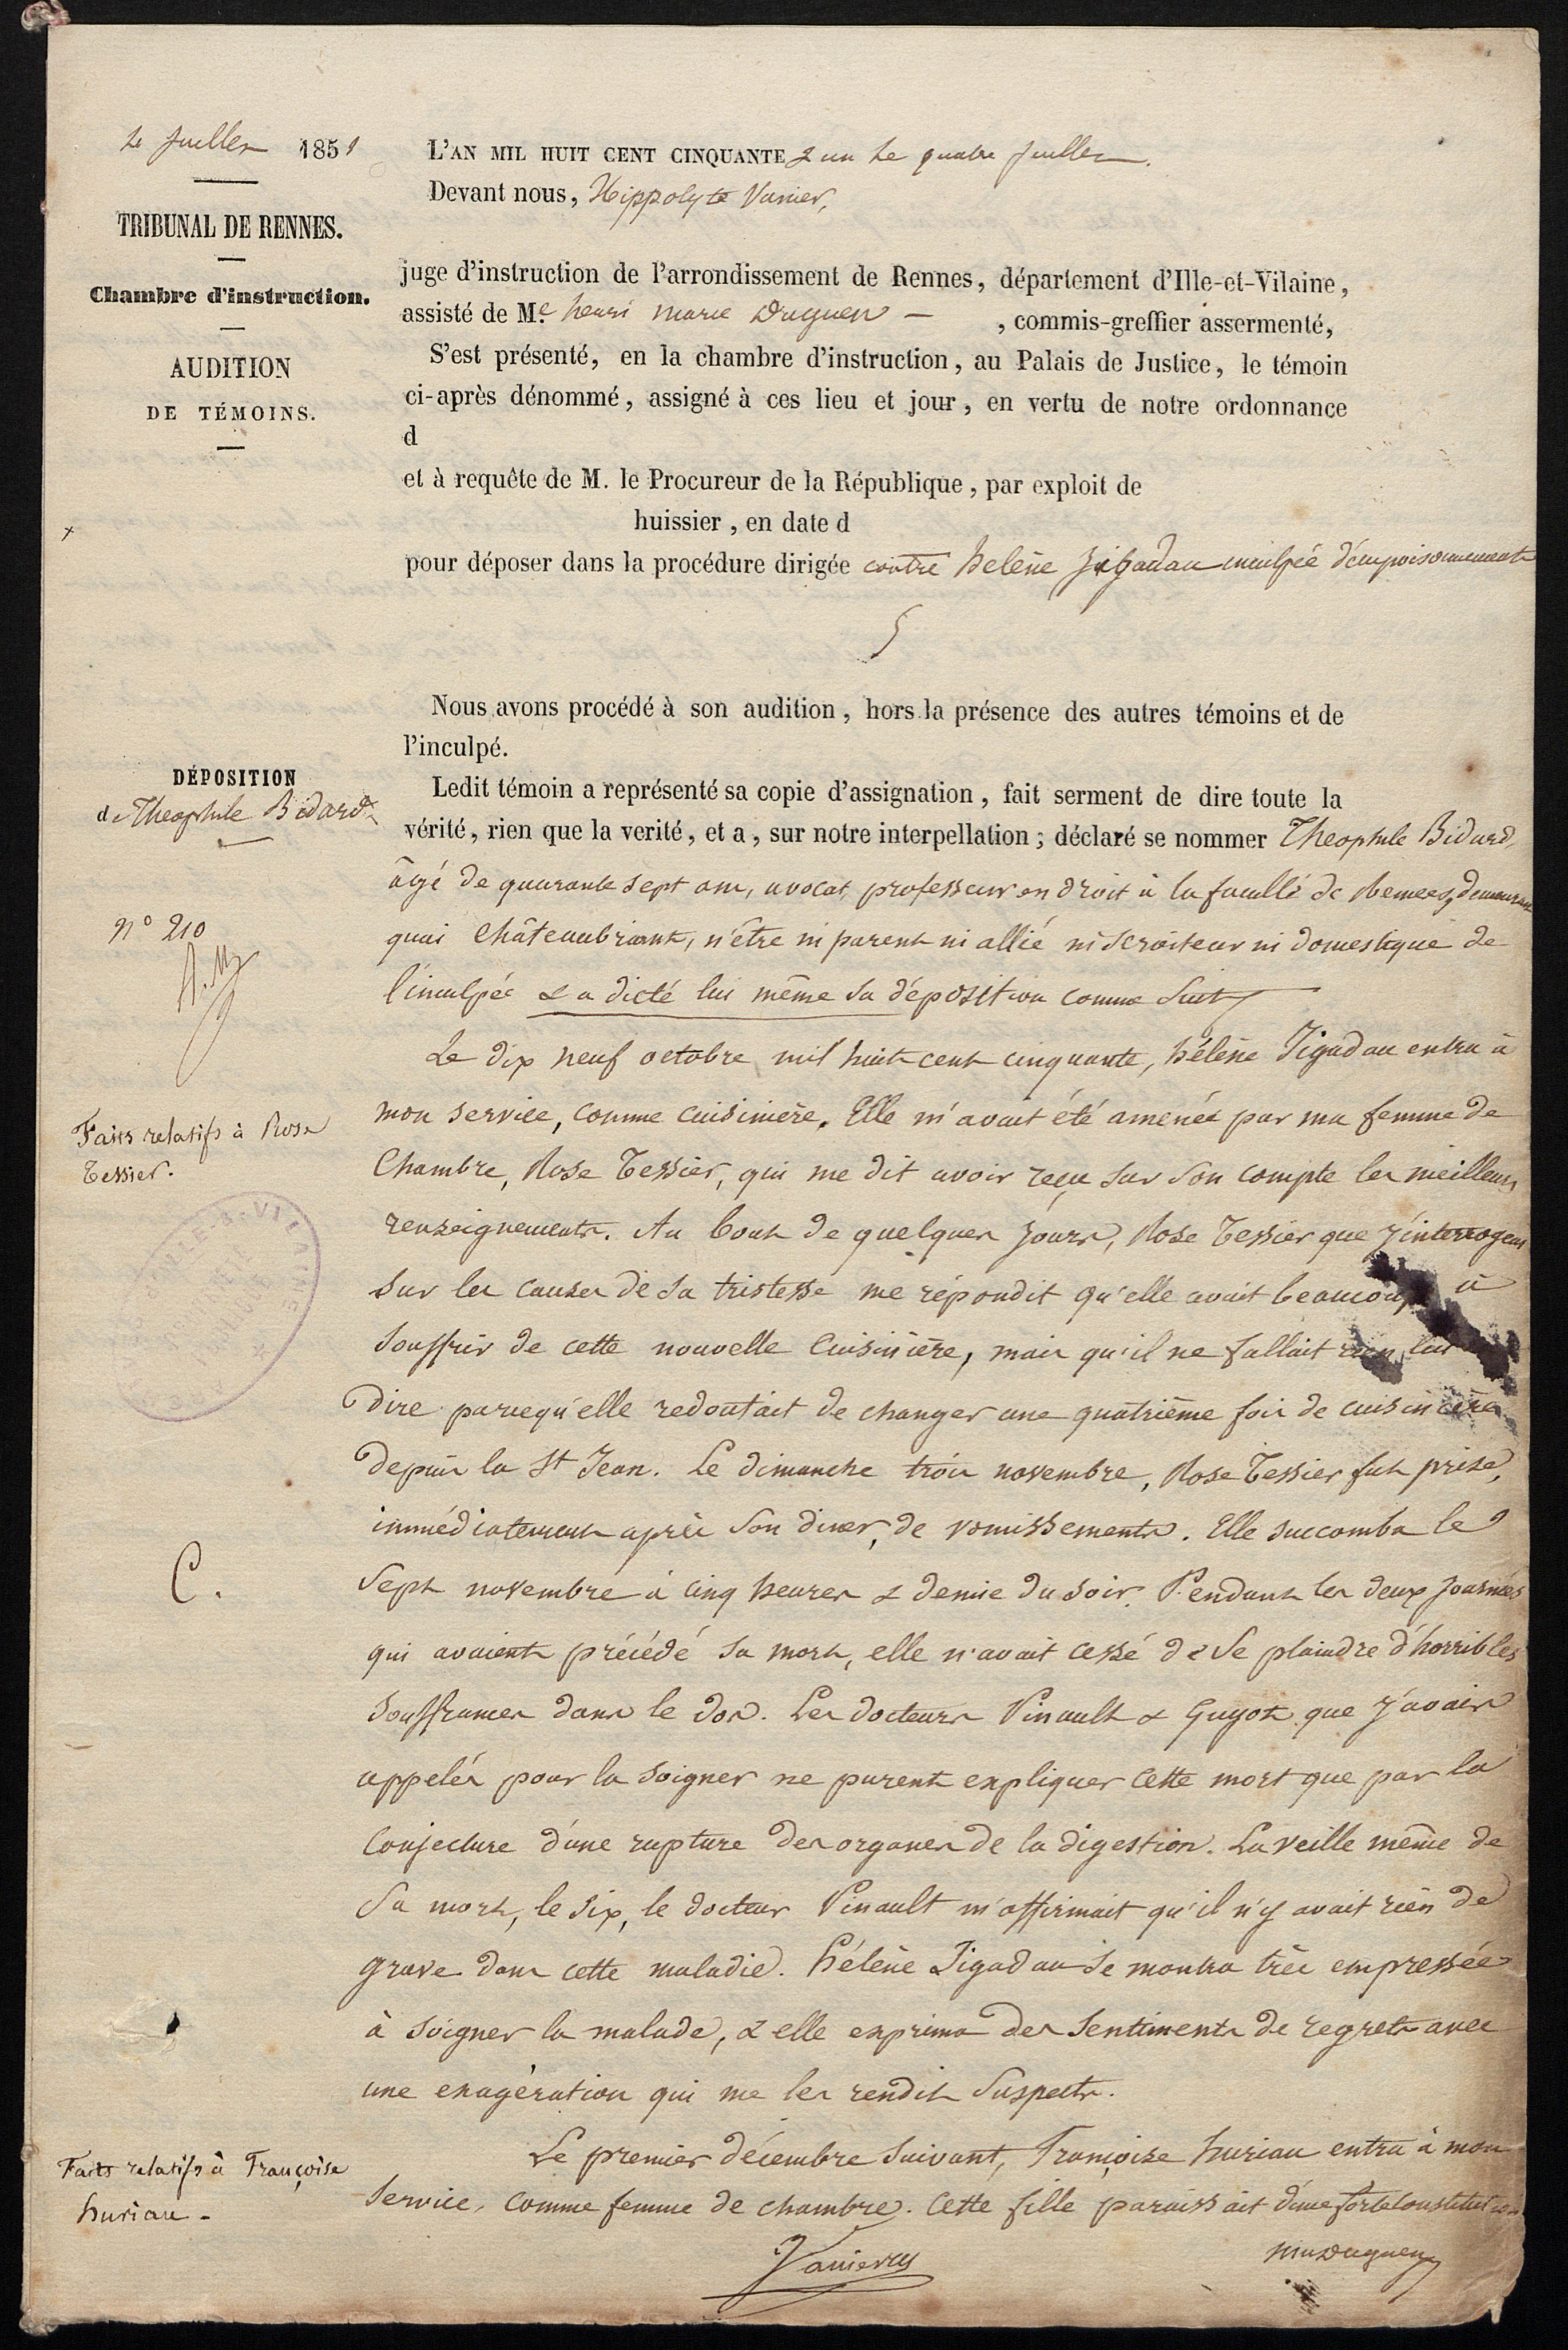 4 Juillet 1851
TRIBUNAL DE RENNES.
Chambre d'instruction.
AUDITION
DE TÉMOINS.
L'AN MIL HUIT CENT CINQUANTE & un Le quatre juillet.
Devant nous, Hippolyte Vanier,
juge d'instruction de l'arrondissement de Rennes, département d'Ille-et-Vilaine,
assisté de Me henri marie Duguen , commis-greffier assermenté,
S'est présenté, en la chambre d'instruction, au Palais de Justice, le témoin
ci-après dénommé, assigné à ces lieu et jour, en vertu de notre ordonnance
d
et à requête de M. le Procureur de la République, par exploit de
huissier, en date d
pour déposer dans la procédure dirigée contre helène Jégadau inculpée d'empoisonnement
Nous avons procédé à son audition, hors la présence des autres témoins et de
l'inculpé.
DÉPOSITION
de Theophile Bidard
Ledit témoin a représenté sa copie d'assignation, fait serment de dire toute la
vérité, rien que la verité, et a, sur notre interpellation; déclaré se nommer Theophile Bidard,
âgé de quarante sept ans, avocat, professeur en droit à la faculté de Rennes, demeurant
quai Châteaubriant, n'être ni parent ni allié ni serviteur ni domestique de
l'inculpée & a dicté lui même sa déposition comme suit
n° 210
Le dix neuf octobre mil huit cent cinquante, hélène Jigadau entra à
Faits relatifs à Rose
Tessier.
mon service, comme cuisinière. Elle m'avait été amenée par ma femme de
Chambre, Rose Tessier, qui me dit avoir reçu sur son compte les meilleurs
renseignements. Au bout de quelques jours, Rose Tessier que j'interrogeais
sur les causes de sa tristesse me répondit qu'elle avait beaucoup à
souffrir de cette nouvelle cuisinière, mais qu'il ne fallait rien lui
dire parcequ'elle redoutait de changer une quatrième fois de cuisinière
depuis la St Jean. Le dimanche trois novembre, Rose Tessier fut prise,
immédiatement après son diner, de vomissements. Elle succomba le
C.
sept novembre à cinq heures & demie du soir. Pendant les deux journées
qui avaient précédé sa mort, elle n'avait cessé de se plaindre d'horribles
souffrances dans le dos. Les docteurs Pinault & Guyot que j'avais
appelés pour la soigner ne purent expliquer cette mort que par la
conjecture d'une rupture des organes de la digestion. La veille même de
sa mort, le six, le docteur Pinault m'affirmait qu'il n'y avait rien de
grave dans cette maladie. hélène Jigadau se montra très empressée
à soigner la malade, & elle exprima des sentiments de regrets avec
une exagération qui me les rendit suspects.
Faits relatifs à Françoise
huriau -
Le premier décembre suivant, Françoise huriau entra à mon
service, comme femme de chambre. Cette fille paraissait d'une forte constitution
Vanier
hmDuguen